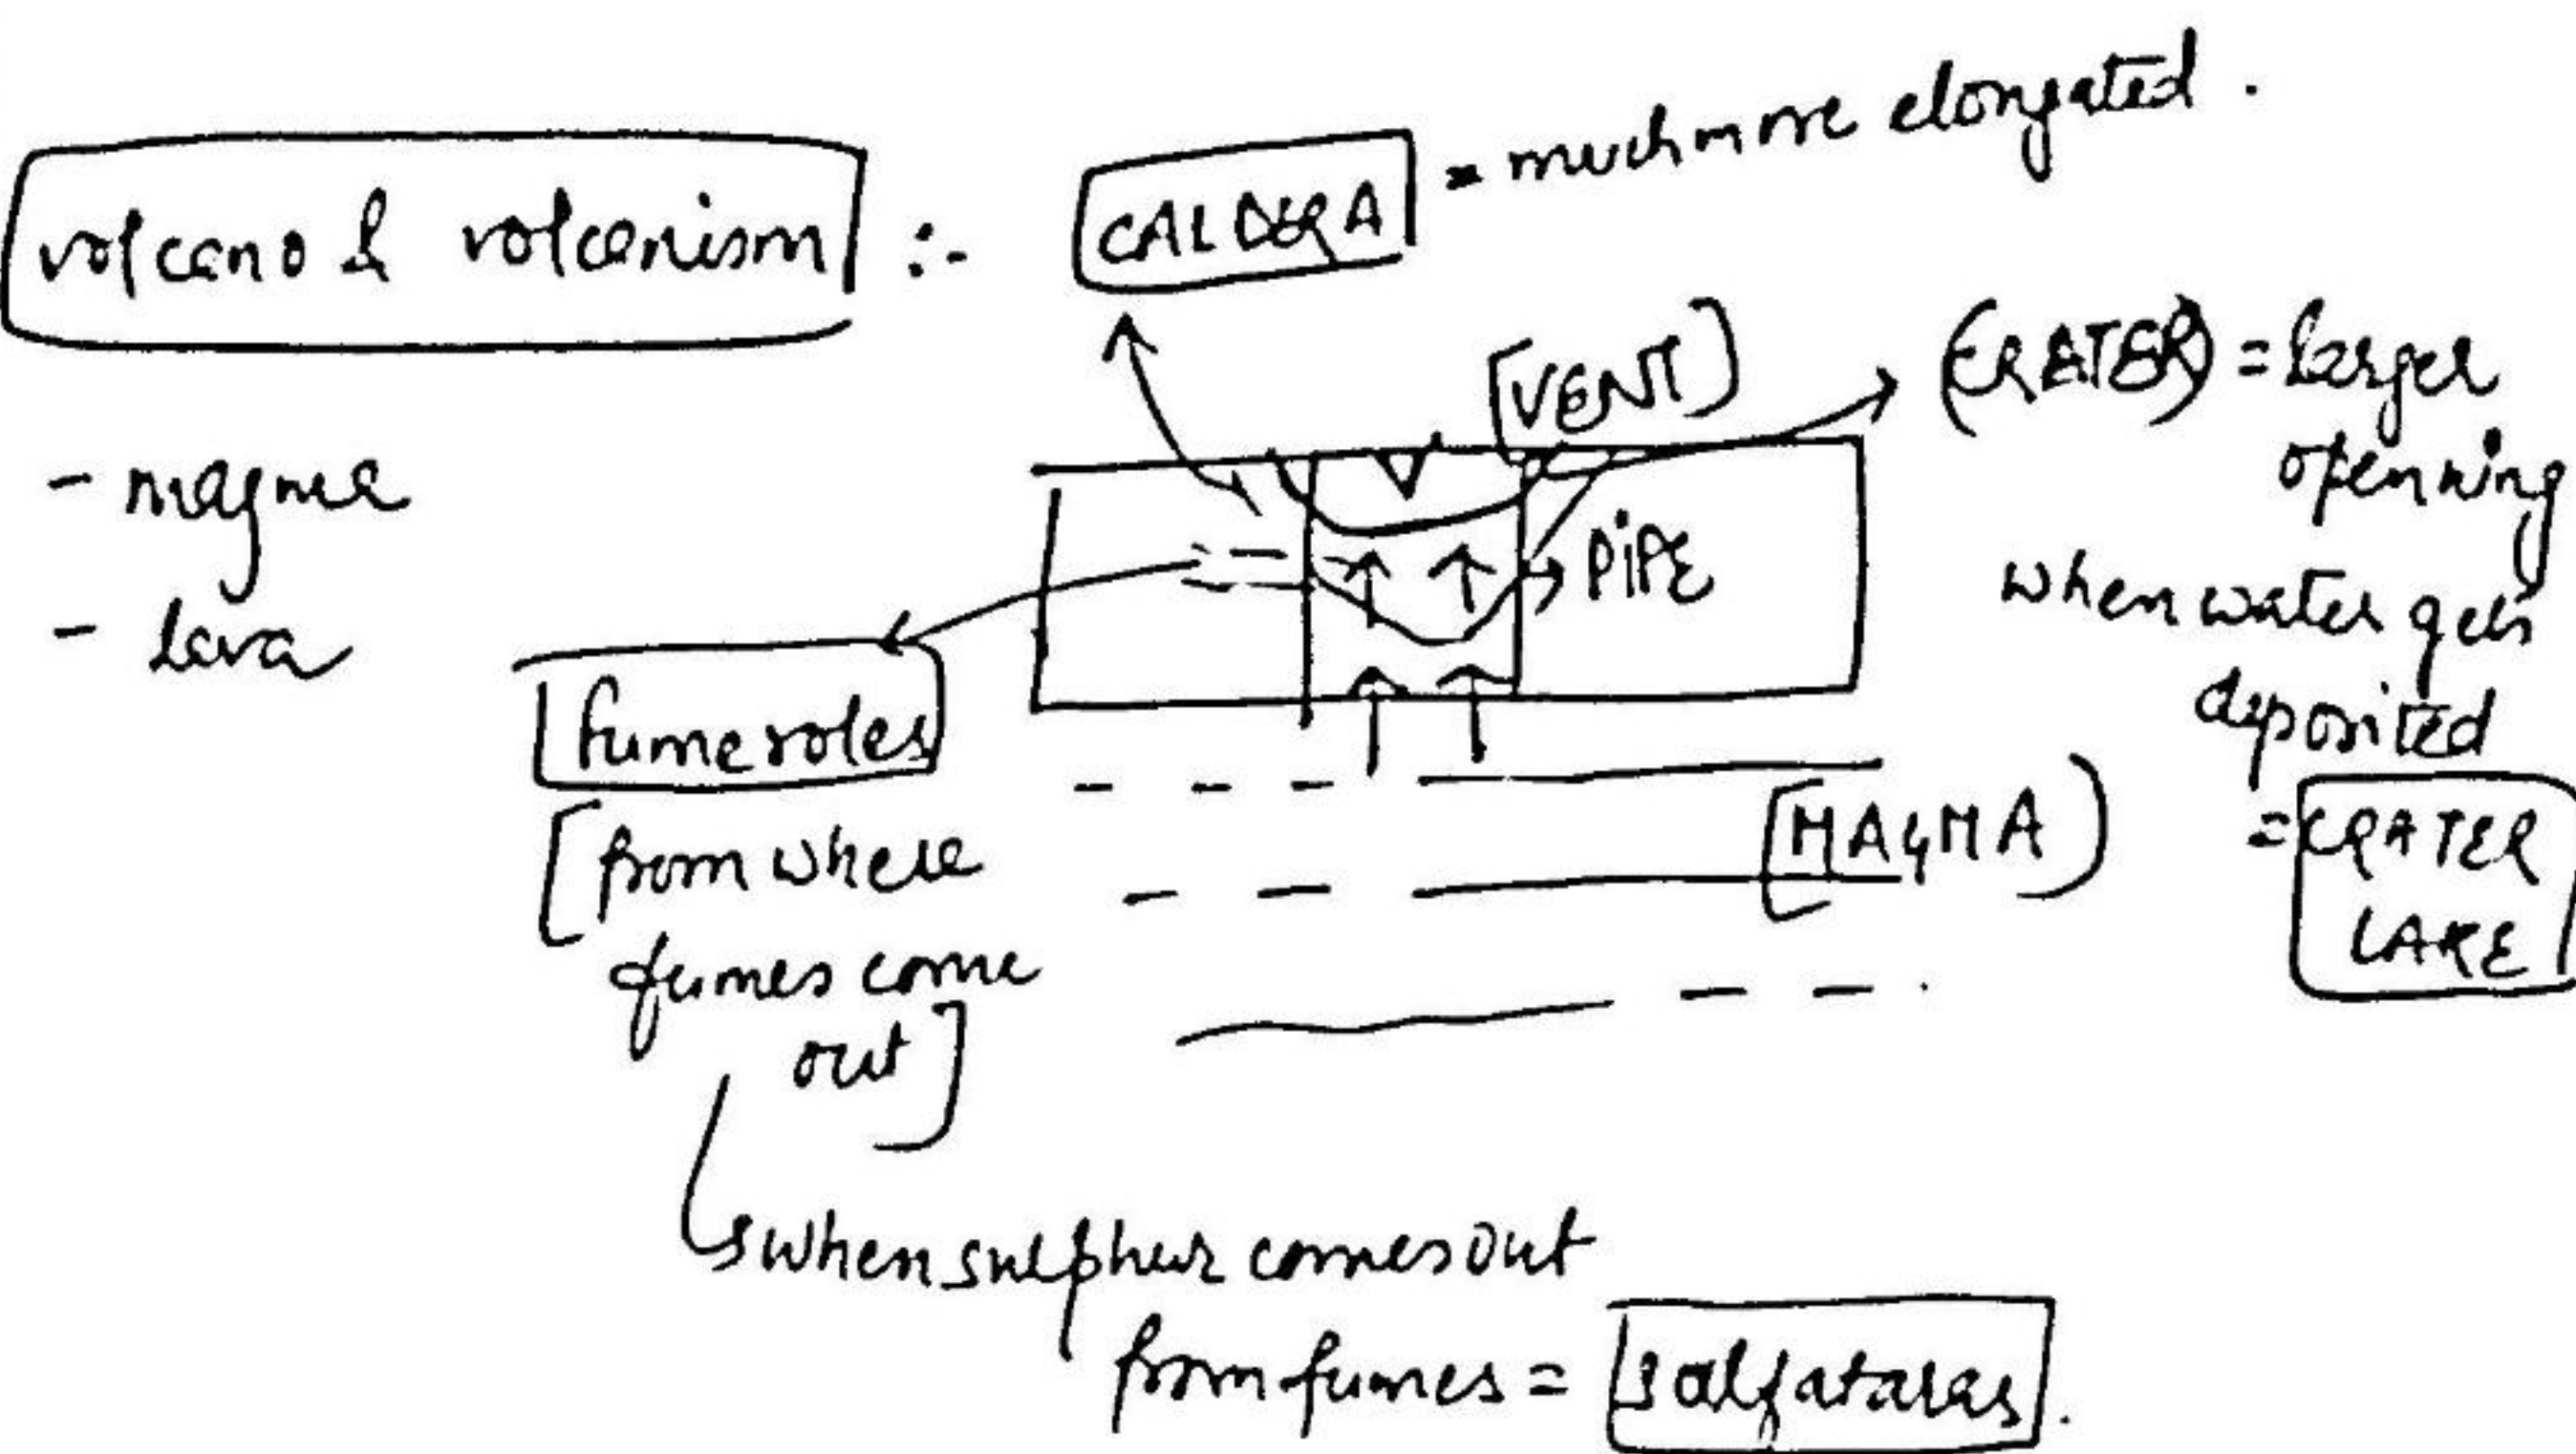 volcano & volcanism :-
CALDERA = much more elongated.
- magma
- lava
[VENT]
(CRATER) = larger
openning
when water gets
deposited
= CRATER
LAKE
PIPE
fumeroles
[from where
fumes come
out]
[MAGMA)
when sulphur comes out
from fumes = salfataras.